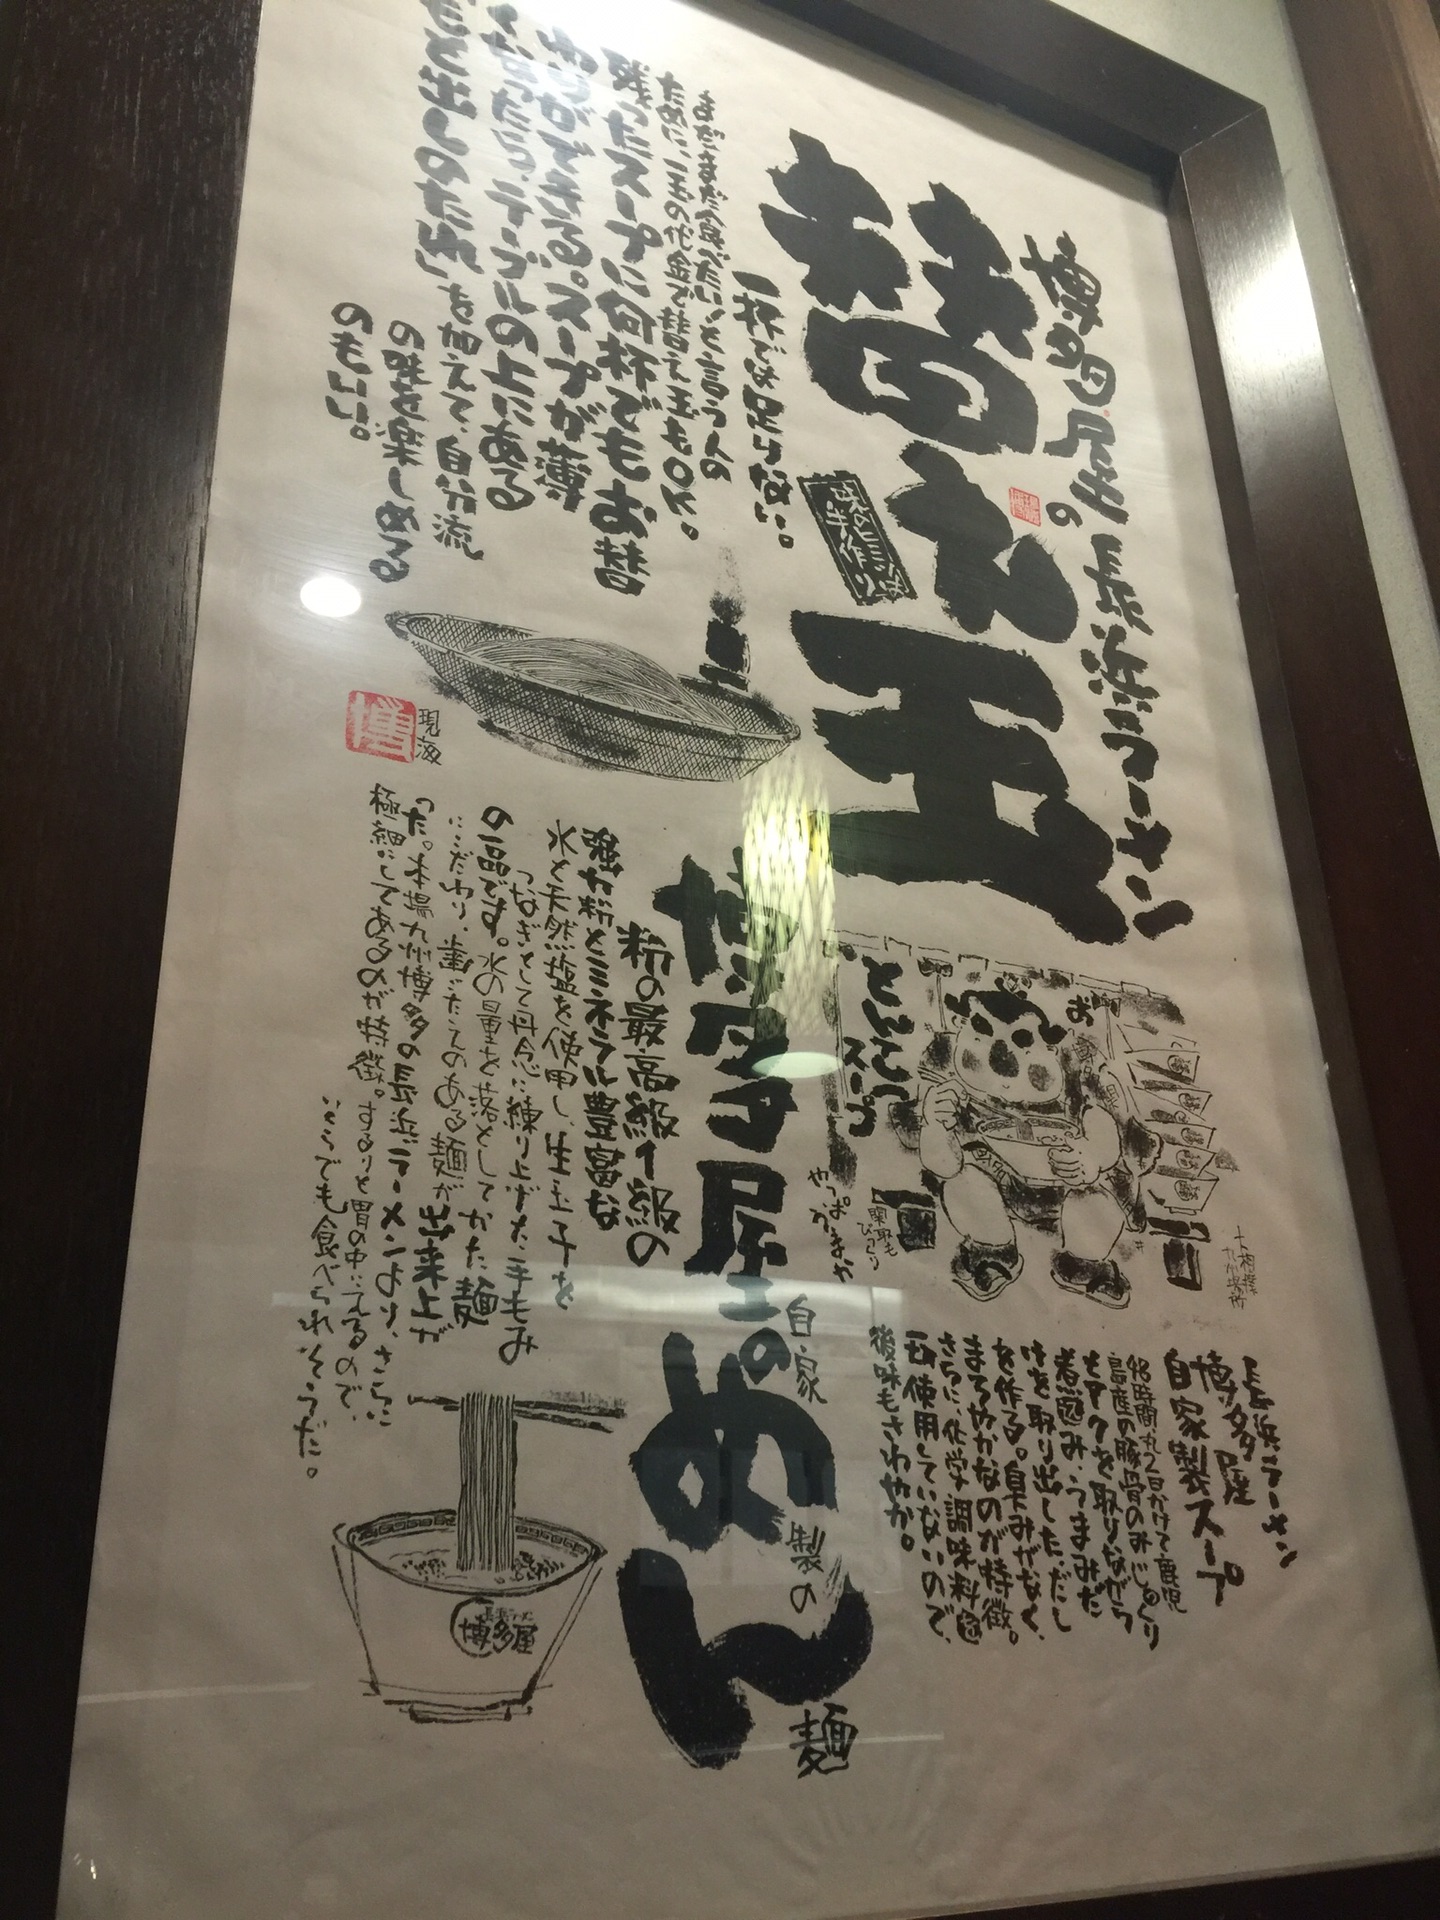 博多屋の長浜ラーメン
替え玉
味のこころ
手作り
一杯では足らない。
まだまだ食べたいと言う人の
ために、一玉の代金で替え玉もOK。
残ったスープに何杯でもお替
わりができる。スープが薄
くなったら、テーブルの上にある
「もと出しのたれ」を加えて、自分流
の味を楽しめる
のもいい。
現海
お
とんこつ
スープ
やっぱうまか
関取も
びっくり
大相撲
九州場所
長浜ラーメン
博多屋
自家製スープ
48時間丸2日かけて鹿児
島産の豚骨のみじっくり
とアクを取りながら
煮込み、うまみだ
けを取り出しただし
を作る。臭みがなく、
まろやかなのが特徴。
さらに、化学調味料も
使用していないので、
後味もさわやか。
博多屋のめん
自家製の麺
粉の最高級1級の
強力粉とミネラル豊富な
水と天然塩を使用し、生玉子を
つなぎとして丹念に練り上げた手もみ
の一品です。水の量を落としてかた麺
にこだわり、歯ごたえのある麺が出来上が
った。本場九州博多の長浜ラーメンより、さらに
極細にしてあるのが特徴。するりと胃の中に入るので、
いくらでも食べられそうだ。
長浜ラーメン
博多屋